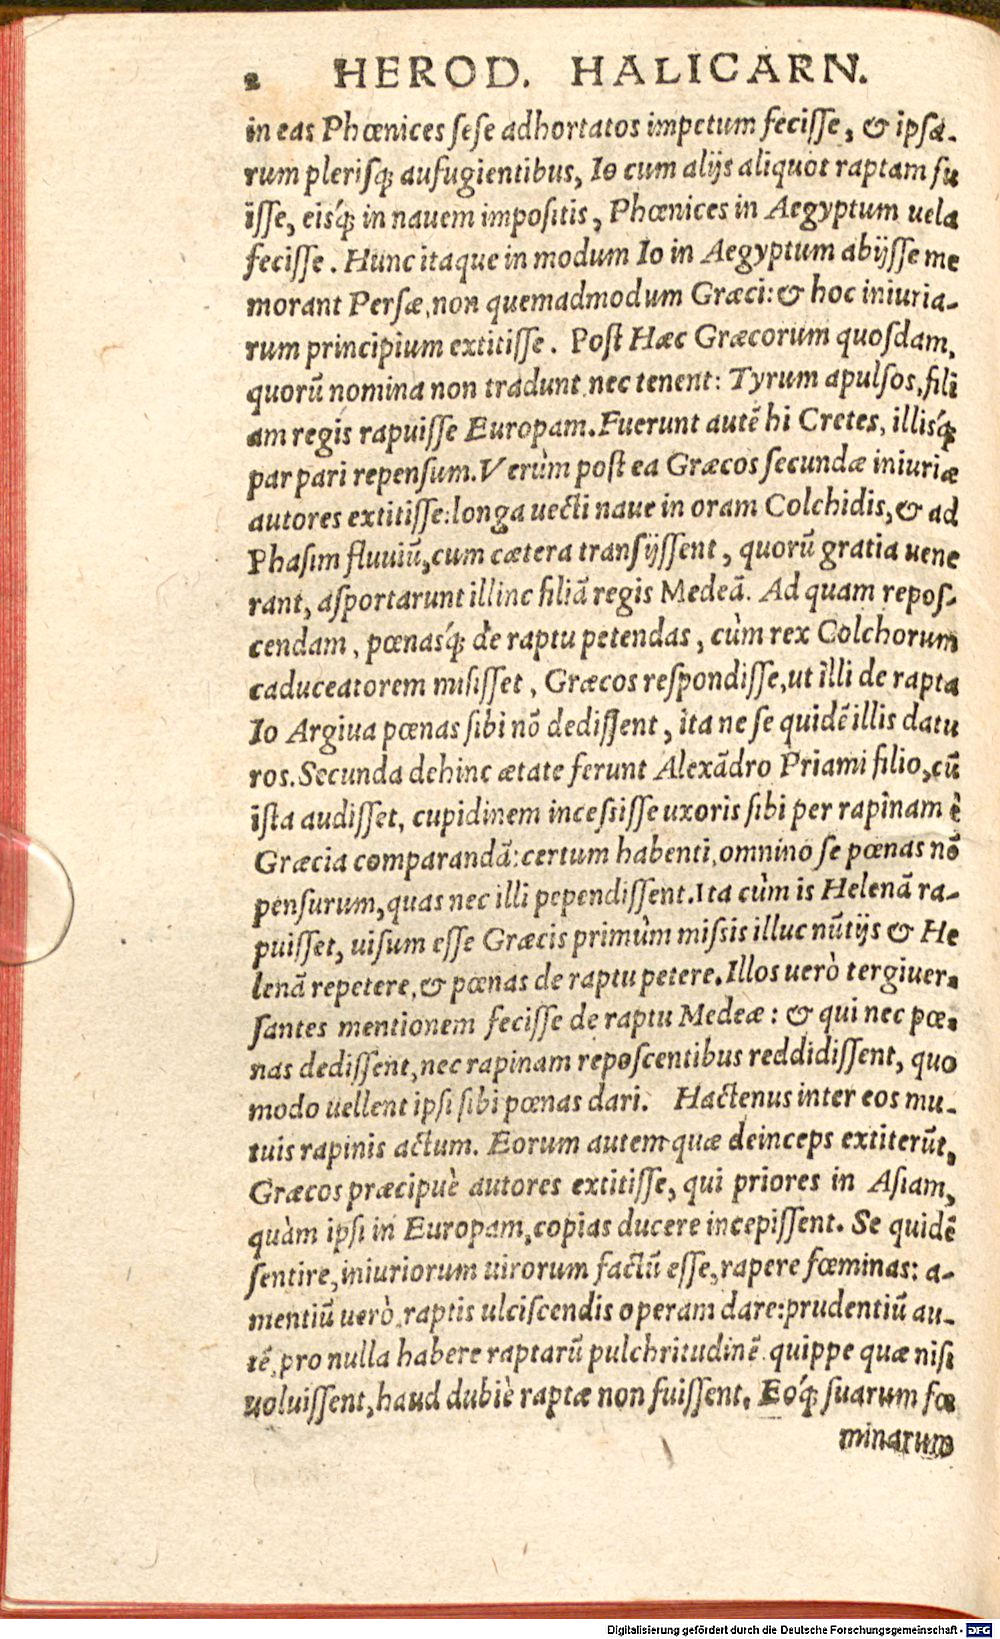 2 HEROD. HALICARN.
in eas Phœnices sese adhortatos impetum fecisse, & ipsa-
rum plerisq́; aufugientibus, Io cum alijs aliquot raptam fu
isse, eisq́; in nauem impositis, Phœnices in Aegyptum uela
fecisse. Hunc itaque in modum Io in Aegyptum abijsse me
morant Persæ, non quemadmodum Græci: & hoc iniuria-
rum principium extitisse. Post Hæc Græcorum quosdam,
quorũ nomina non tradunt nec tenent: Tyrum apulsos, fili
am regis rapuisse Europam. Fuerunt autẽ hi Cretes, illisq́;
par pari repensum. Verùm post ea Græcos secundæ iniuriæ
autores extitisse: longa uecti naue in oram Colchidis, & ad
Phasim fluuiũ, cum cætera transijssent, quorũ gratia uene
rant, asportarunt illinc filiã regis Medeã. Ad quam repos-
cendam, pœnasq́; de raptu petendas, cùm rex Colchorum
caduceatorem misisset, Græcos respondisse, ut illi de rapta
Io Argiua pœnas sibi nõ dedissent, ita ne se quidẽ illis datu
ros. Secunda dehinc ætate ferunt Alexãdro Priami filio, cũ
ista audisset, cupidinem incessisse uxoris sibi per rapinam è
Græcia comparandã: certum habenti, omnino se pœnas nõ
pensurum, quas nec illi pependissent. Ita cùm is Helenã ra-
puisset, uisum esse Græcis primùm missis illuc nũtijs & He
lenã repetere, & pœnas de raptu petere. Illos uerò tergiuer-
santes mentionem fecisse de raptu Medeæ: & qui nec pœ-
nas dedissent, nec rapinam reposcentibus reddidissent, quo
modo uellent ipsi sibi pœnas dari. Hactenus inter eos mu-
tuis rapinis actum. Eorum autem quæ deinceps extiterũt,
Græcos præcipuè autores extitisse, qui priores in Asiam,
quàm ipsi in Europam, copias ducere incepissent. Se quidẽ
sentire, iniuriorum uirorum factũ esse, rapere fœminas: a-
mentiũ uerò, raptis ulciscendis operam dare: prudentiũ au-
tẽ, pro nulla habere raptarũ pulchritudinẽ. quippe quæ nisi
uoluissent, haud dubiè raptæ non fuissent. Eoq́; suarum fœ
minarum
Digitalisierung gefördert durch die Deutsche Forschungsgemeinschaft - DFG